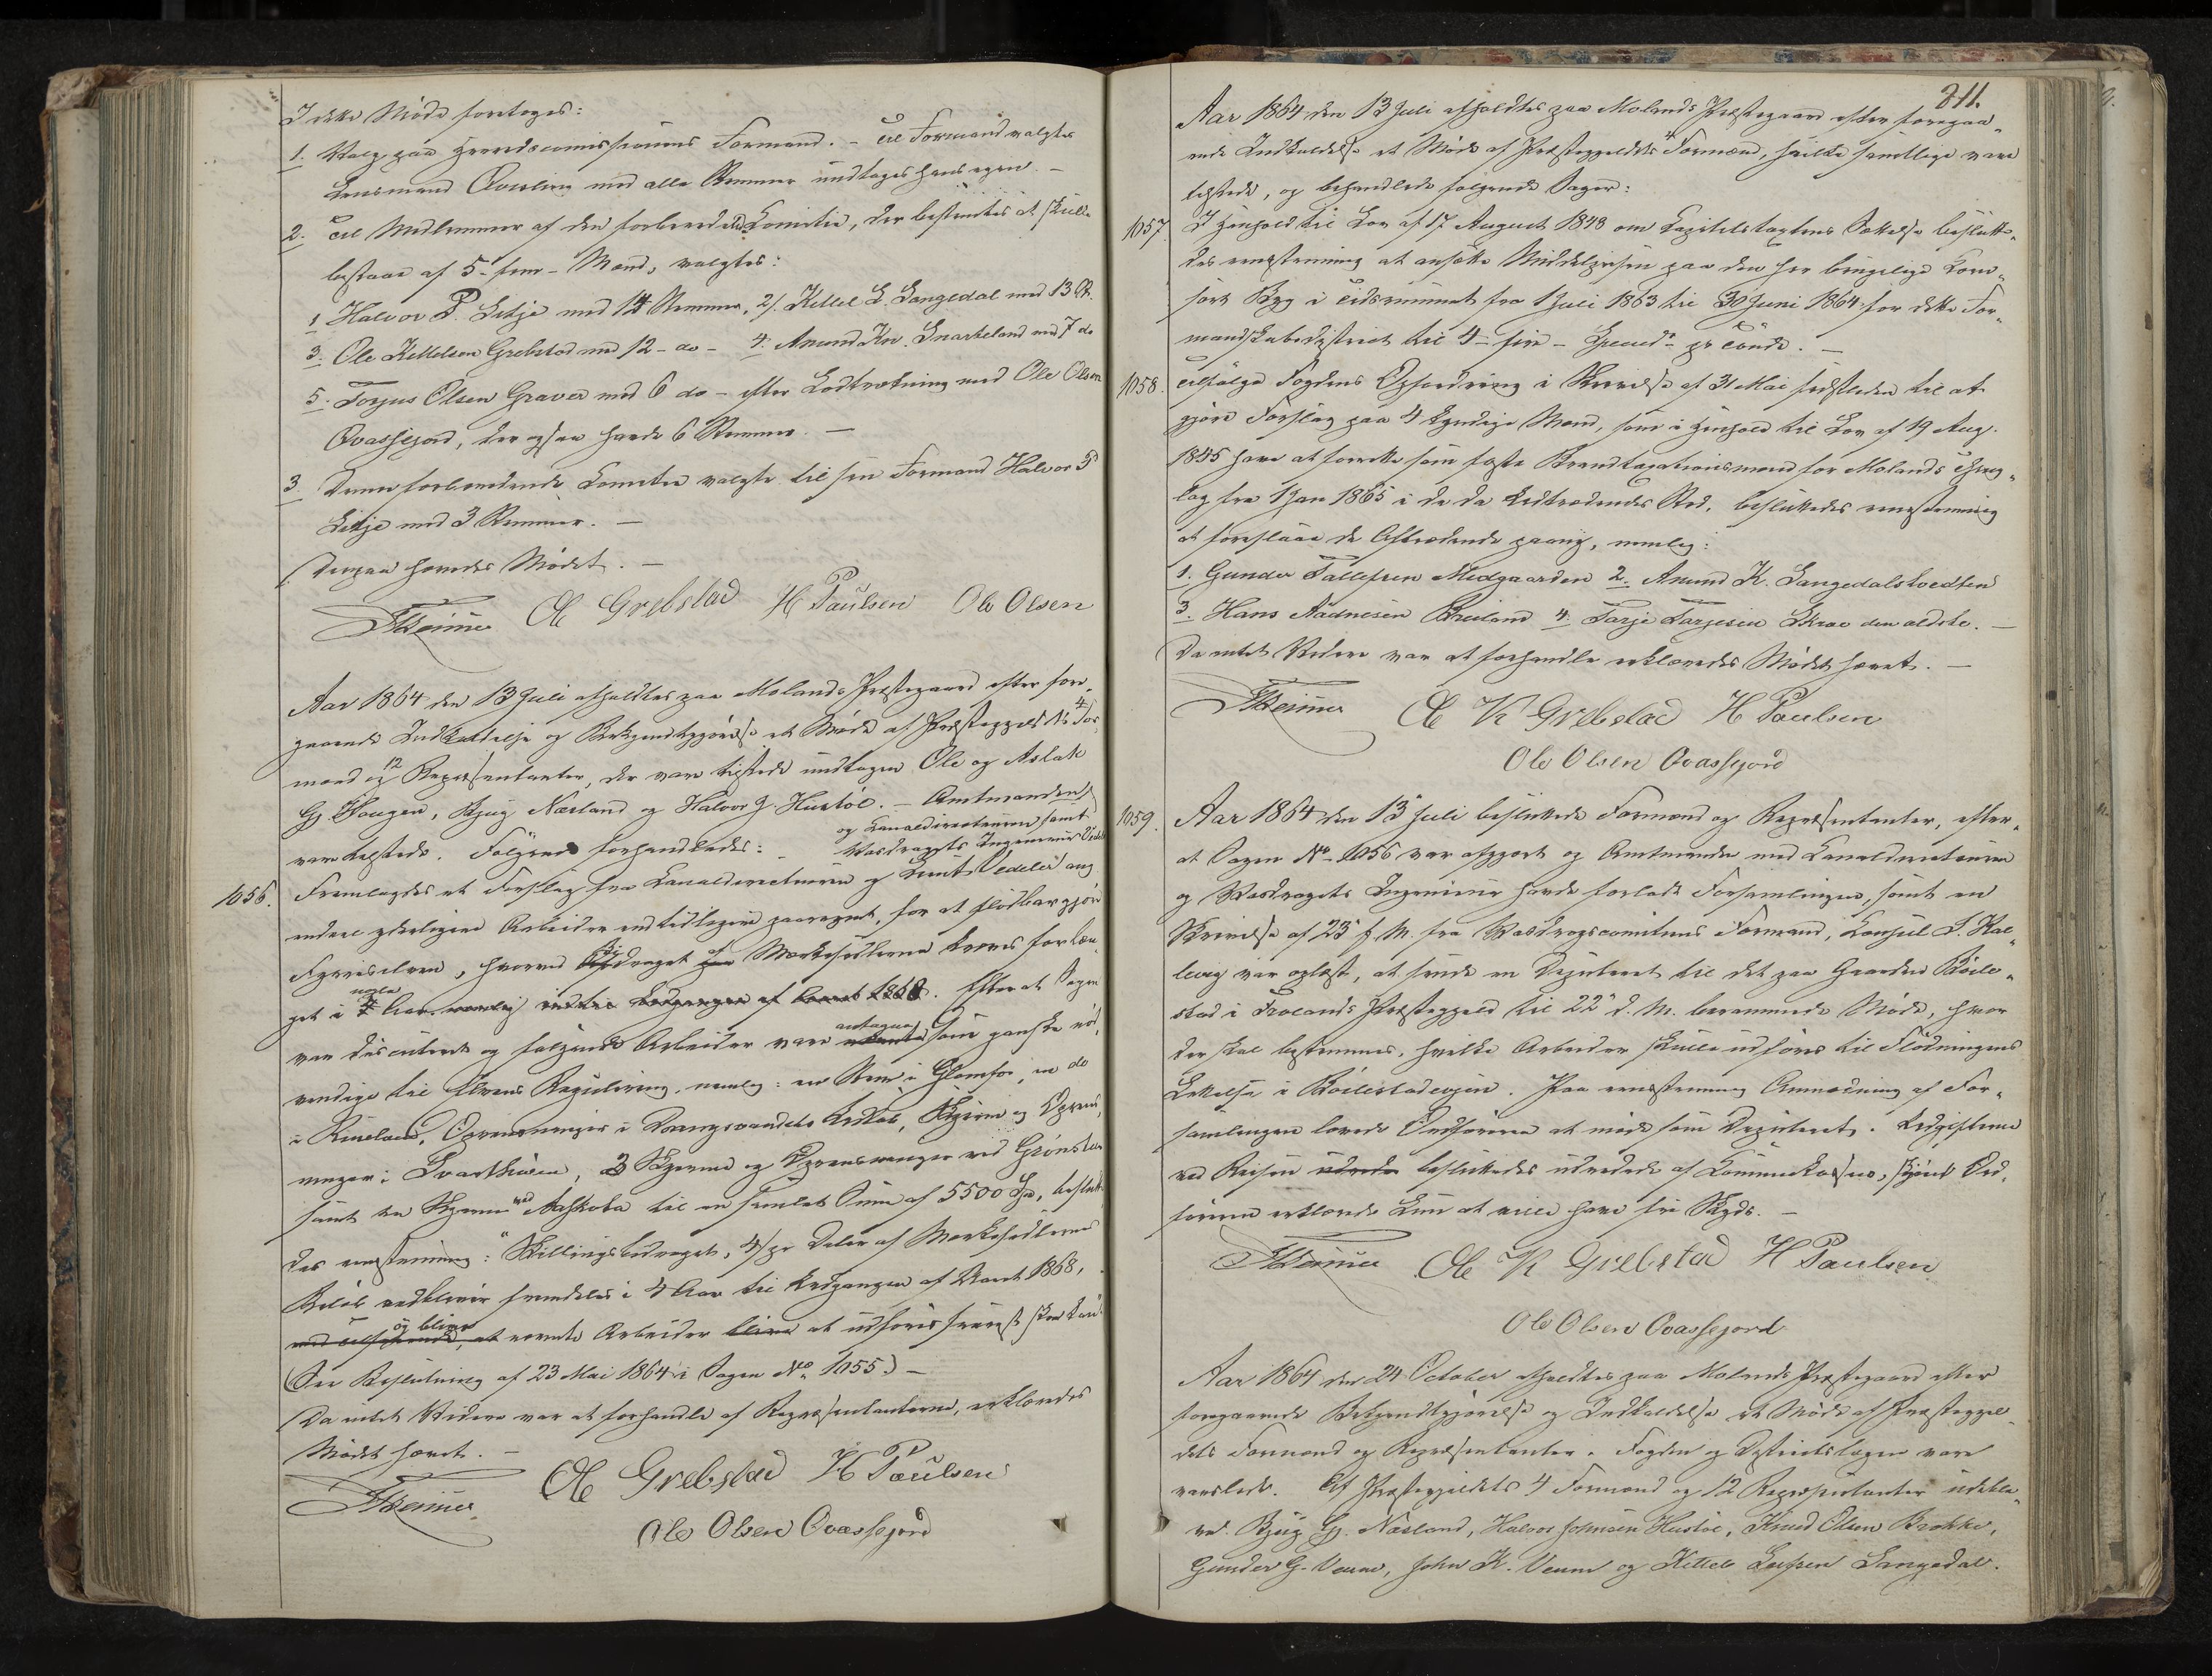 I dette Møde foretoges:
1. Valg paa Herredscomissionens Formand. – Til Formand valgtes
Lensmand med alle Stemmer undtages hans egen. –
2. Til Medlemmer af den forberedende Comitee, der bestemtes at skulle
bestaae af 5 – fem – Mænd, valgtes:
1 Halvor P. Litje med 14 Stemmer, 2/. Kettel L. Langedal med 13 St.
3. Ole Kittelsen Grebstad med 12 – do – 4. Anund Kn. Snarteland med 7 do
5. Torjus Olsen Graver med 6 do – efter Lodtrækning med Ole Olsen
Qvassejord, der ogsaa havde 6 Stemmer. –
3. Denne forberedende Comitee valgte til sin Formand Halvor P
Litje med 3 Stemmer. –
Derpaa hævedes Mødet. –
Ole Grebstad H Paulsen Ole Olsen
Aar 1864 den 13 Juli afholdtes paa Molands Præstegaard efter fore-
gaaende Indkaldelse og Bekjendtgjørelse et Møde af Præstegjeldets 4 For-
mænd og 12 Repræsentanter, der vare tilstede undtagen Ole og Aslak
Gj. Haugen, Bjug Næsland og Halvor J. Hustöl. – Amtmanden
og Canaldirecteuren samt
Vasdragets Ingenieur
vare tilstede. Følgende forhandledes:
1056. Fremlagdes et Forslag fra Canaldirecteuren og Vedeler ang
endeel yderligere Arbeider end tidligere paaregnet, for at flødbargjøre
Fyreselven, hvorved Bidraget af Mærkesedlerne kræves forlæn-
get i nogle Aar. Efterat Sagen
var discuteret og følgende Arbeider vare antagne som ganske nød-
vendige til Elvens Regulering, nemlig: en Stem i Glomfos, en do
i Rueland, Oprensninger i Drangsvandets Udløb, Skjerme og Oprens-
ninger i Svarthølen, 3 Skjerme og Oprensninger ved Grönsten
samt en Skjerm ved Askoba til en samlet Sum af 5500 Spd, beslutte-
des eenstemmig: "Skillingsbidraget, 4/ pr Daler af Mærkesedlernes
Beløb vedbliver fremdeles i 4 Aar til Udgangen af Aaret 1868,
og bliver nævnte Arbeider at udføres snarest skee kan"
(See Beslutning af 23 Mai 1864 i Sagen No 1055) –
Da intet Videre var at forhandle af Repræsentanterne, erklæredes
Mødet hævet. –
Ole Grebstad H Paulsen
Ole Olsen Qvassejord
211.
Aar 1864 den 13 Juli afholdtes paa Molands Præstegaard efter foregaa-
ende Indkaldelse et Møde af Præstegjeldets 4 Formænd, hvilke samtlige vare
tilstede, og behandlede følgende Sager:
1057. I Henhold til Lov af 17 August 1848 om Capitelstaxtens Sættelse beslutte-
des eenstemmig at ansætte Middelprisen paa den her brugelige Korn-
sort Byg i Tidsrummet fra 1 Juli 1863 til 30 Juni 1864 for dette For-
mandskabsdistrict til 4 – fire – Speciedr pr Tønde. –
1058. Ifølge Fogdens Opfordring i Skrivelse af 31 Mai sidstleden til at
gjøre Forslag paa 4 kyndige Mænd, som i Henhold til Lov af 19 Aug.
1845 have at forrette som faste Brandtaxationsmænd for Molands Thing-
lag fra 1 Jan 1865 i de da Udtrædendes Sted, besluttedes eenstemmig
at foreslaae de Aftrædende paany, nemlig:
1. Gunder Tallefsen Midgaarden 2. Anund K. Langedalstvedten
3. Hans Aadnesen Breiland 4. Tarje Tarjesen Skree den ældste. –
Da intet Videre var at forhandle erklæredes Mødet hævet. –
Ole K Grebstad H Paulsen
Ole Olsen Qvassejord
1059. Aar 1864 den 13 Juli besluttede Formænd og Repræsentanter, efter-
at Sagen No 1056 var afgjort og Amtmanden med Canaldirecteuren
og Vasdragets Ingenieur havde forladt Forsamlingen, samt en
Skrivelse af 23 f. M. fra Vasdragscomiteens Formand, Konsul S. Kal-
levig var oplæst, at sende en Deputeret til det paa Gaarden Böile-
stad i Frolands Præstegjeld til 22 d. M. berammede Møde, hvor
der skal bestemmes, hvilke Arbeider skulle udføres til Flødningens
Lettelse i Böilestadevjen. Paa eenstemmig Anmodning af For-
samlingen lovede Ordføreren at møde som Deputeret. Udgifterne
ved Reisen besluttedes udredede af Communekassen, skjønt Ord-
føreren erklærede kun at ville have fri Skyds. –
Ole K Grebstad H Paulsen
Ole Olsen Qvassejord
Aar 1864 den 24 October afholdtes paa Molands Præstegaard efter
foregaaende Bekjendtgjørelse og Indkaldelse et Møde af Præstegjel-
dets Formænd og Repræsentanter. Fogden og Districtslægen vare
varslede. Af Præstegjeldets 4 Formænd og 12 Repræsentanter udeble-
ve: Bjug Gj. Næsland, Halvor Johnsen Hustöl, Knud Olsen Brokke,
Gunder G. Veum, John K. Veum og Kittel Leifsen Langedal.